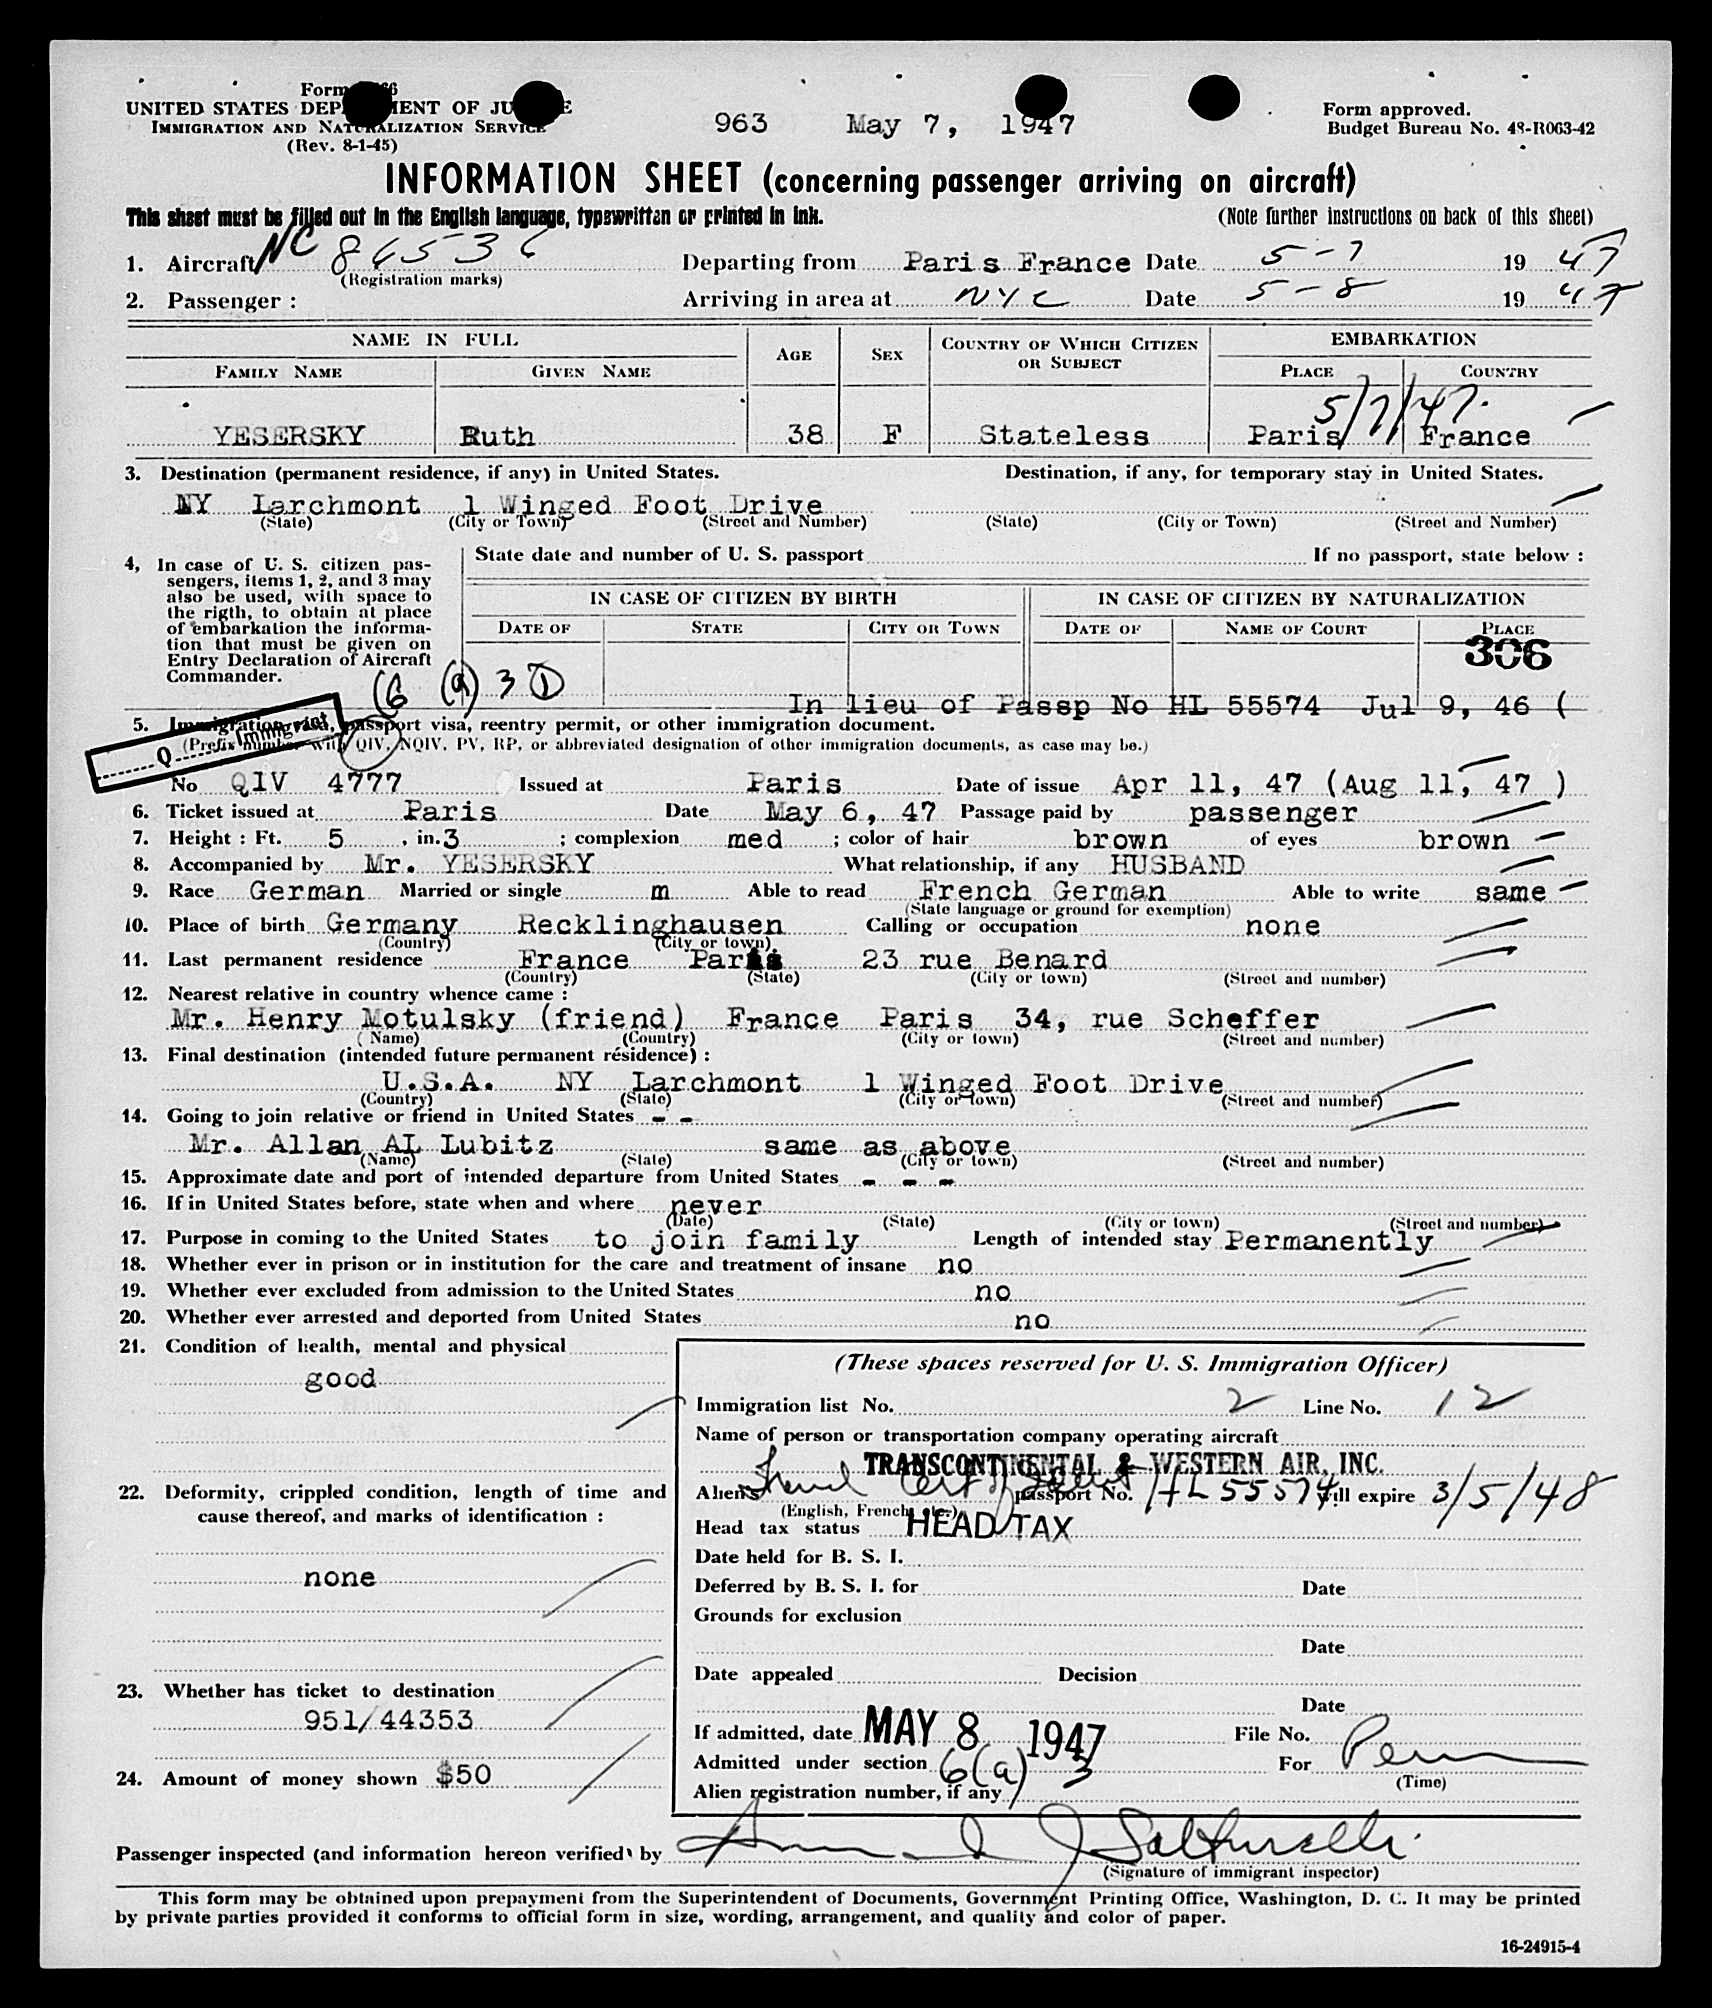 Form
UNITED STATES DEPARTMENT OF JUSTICE
IMMIGRATION AND NATURALIZATION SERVICE
(Rev. 8-1-45)
963 May 7, 1947
Form approved.
Budget Bureau No. 43-R063-42
INFORMATION SHEET (concerning passenger arriving on aircraft)
This sheet must be filled out in the English language, typewritten or printed in ink. (Note further instructions on back of this sheet)
1. Aircraft NC 86536 Departing from Paris France Date 5-7 19 47
(Registration marks)
2. Passenger : Arriving in area at NYC Date 5-8 19 47
NAME IN FULL AGE SEX COUNTRY OF WHICH CITIZEN OR SUBJECT EMBARKATION
FAMILY NAME GIVEN NAME PLACE COUNTRY
5/7/47.
YESERSKY Ruth 38 F Stateless Paris France
3. Destination (permanent residence, if any) in United States. Destination, if any, for temporary stay in United States.
NY Larchmont 1 Winged Foot Drive
(State) (City or Town) (Street and Number) (State) (City or Town) (Street and Number)
4, In case of U. S. citizen pas-
sengers, items 1, 2, and 3 may
also be used, with space to
the rigth, to obtain at place
of embarkation the informa-
tion that must be given on
Entry Declaration of Aircraft
Commander.
State date and number of U. S. passport If no passport, state below :
IN CASE OF CITIZEN BY BIRTH IN CASE OF CITIZEN BY NATURALIZATION
DATE OF STATE CITY OR TOWN DATE OF NAME OF COURT PLACE
306
(6 (a) 3 1
In lieu of Passp No HL 55574 Jul 9, 46 (
5. Immigration visa, passport visa, reentry permit, or other immigration document.
Q Immigrant
(Prefix number with QIV, NQIV, PV, RP, or abbreviated designation of other immigration documents, as case may be.)
No QIV 4777 Issued at Paris Date of issue Apr 11, 47 (Aug 11, 47 )
6. Ticket issued at Paris Date May 6, 47 Passage paid by passenger
7. Height : Ft. 5 , in. 3 ; complexion med ; color of hair brown of eyes brown
8. Accompanied by Mr. YESERSKY What relationship, if any HUSBAND
9. Race German Married or single m Able to read French German Able to write same
(State language or ground for exemption)
10. Place of birth Germany Recklinghausen Calling or occupation none
(Country) (City or town)
11. Last permanent residence France Paris 23 rue Benard
(Country) (State) (City or town) (Street and number)
12. Nearest relative in country whence came :
Mr. Henry Motulsky (friend) France Paris 34, rue Scheffer
(Name) (Country) (City or town) (Street and number)
13. Final destination (intended future permanent résidence) :
U.S.A. NY Larchmont 1 Winged Foot Drive
(Country) (State) (City or town) (Street and number)
14. Going to join relative or friend in United States - -
Mr. Allan AL Lubitz same as above
(Name) (State) (City or town) (Street and number)
15. Approximate date and port of intended departure from United States - - -
16. If in United States before, state when and where never
(Date) (State) (City or town) (Street and number)
17. Purpose in coming to the United States to join family Length of intended stay Permanently
18. Whether ever in prison or in institution for the care and treatment of insane no
19. Whether ever excluded from admission to the United States no
20. Whether ever arrested and deported from United States no
21. Condition of health, mental and physical
good
22. Deformity, crippled condition, length of time and
cause thereof, and marks of identification :
none
23. Whether has ticket to destination
951/44353
24. Amount of money shown $50
(These spaces reserved for U. S. Immigration Officer)
Immigration list No. 2 Line No. 12
Name of person or transportation company operating aircraft
TRANSCONTINENTAL & WESTERN AIR, INC.
Alien's passport No. HL 55574 will expire 3/5/48
(English, French, etc.)
Head tax status HEAD TAX
Date held for B. S. I.
Deferred by B. S. I. for Date
Grounds for exclusion
Date
Date appealed Decision
Date
If admitted, date MAY 8 1947 File No.
Admitted under section 6(a) 3 For Perm
(Time)
Alien registration number, if any
Passenger inspected (and information hereon verified) by
(Signature of immigrant inspector)
This form may be obtained upon prepayment from the Superintendent of Documents, Government Printing Office, Washington, D. C. It may be printed
by private parties provided it conforms to official form in size, wording, arrangement, and quality and color of paper.
16-24915-4